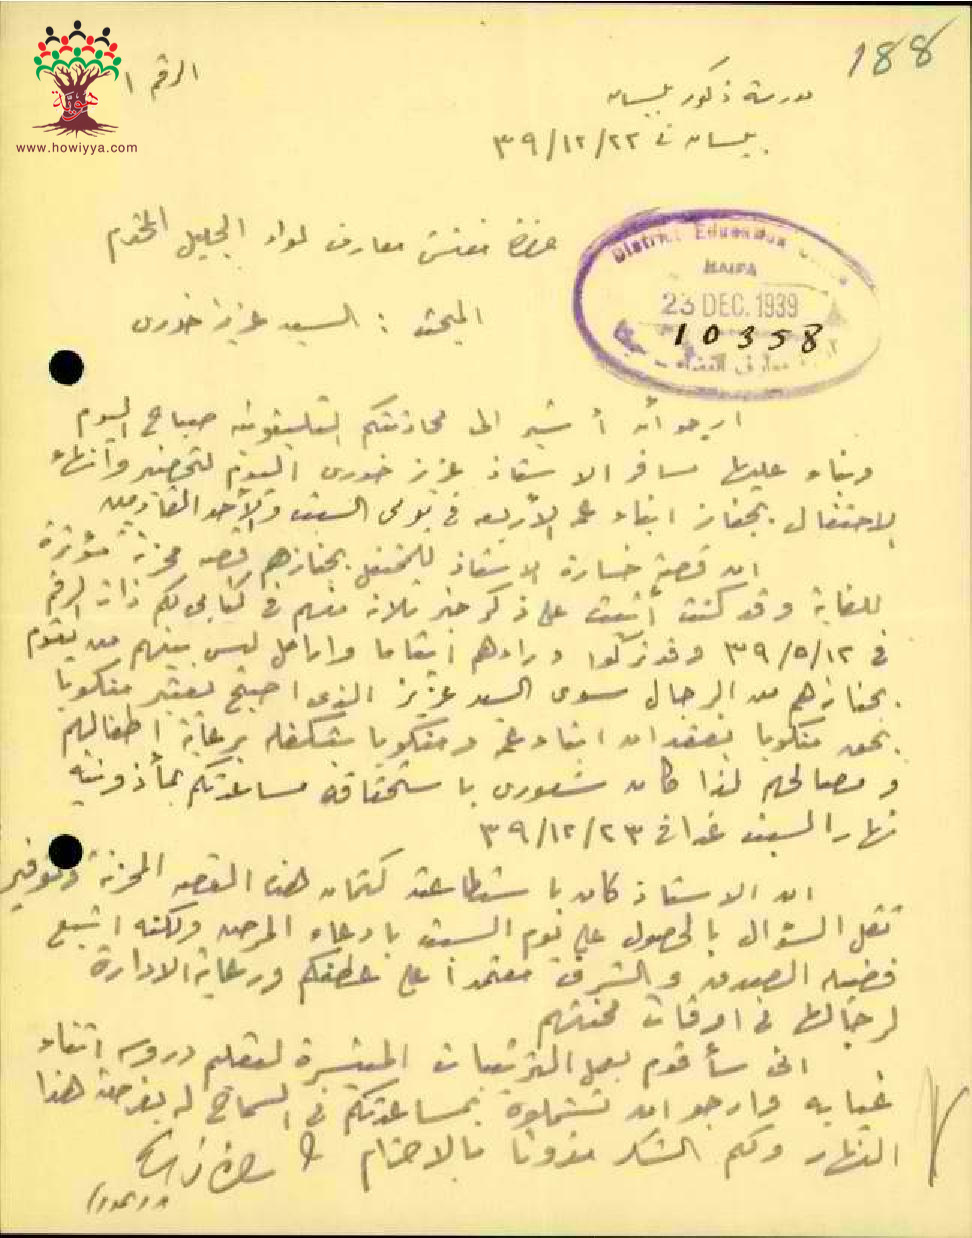 188
الرقم ١
هوية
www.howiyya.com
مدرسة ذكور بيسان
بيسان في ٢٢/١٢/٣٩
حضرة مفتش معارف لواء الجليل المحترم
District Education
HAIFA
23 DEC. 1939
10358
معارف
المبحث : السيد عزيز خوري
ارجو أن أشير الى محادثتكم التليفونية صباح اليوم
وبناء عليها سافر الاستاذ عزيز خوري اليوم لتحضير وانهاء
الاحتفال بجناز ابناء عمه الأربعة في يومي السبت والأحد القادمين
ان قصة خسارة الاستاذ للمحتفل بجنازهم قصة محزنة مؤثرة
للغاية وقد كنت أتيت على ذكر خبر ثلاثة منهم في كتابي لكم ذات الرقم
في ١٢/٥/٣٩ وقد تركوا وراءهم ايتاما وارامل ليس بينهم من يقوم
بجنازهم من الرجال سوى السيد عزيز الذي اصبح يعتبر منكوبا
بحق منكوبا بفقدان ابناء عمه ومنكوبا بتكفله برعاية اطفالهم
ومصالحهم لذا كان شعوري باستحقاقه مساعدتكم بمأذونية
نهار السبت غدا في ٢٣/١٢/٣٩
ان الاستاذ كان باستطاعته كتمان هذه القصة المحزنة وتوفير
ثقل السؤال بالحصول على يوم السبت بادعاء المرض ولكنه اتبع
فضيلة الصدق والشرف معتمدا على عطفكم ورعاية الادارة
لرجالها في اوقات محنتهم
اني سأقوم بعمل الترتيبات المتيسرة لتعليم دروسه اثناء
غيابه وارجو ان تشملوه بمساعدتكم في السماح له بفرصة هذا
النهار ولكم الشكر مقرونا بالاحترام